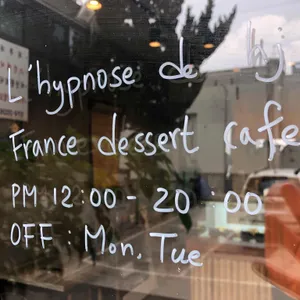 L'hypnose de bj
France dessert cafe
PM 12:00 - 20:00
OFF : Mon, Tue